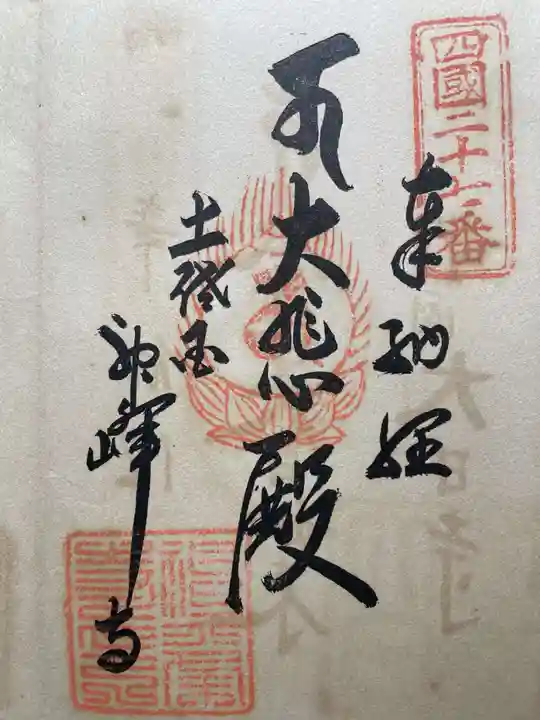 四國二十七番
奉納経
大悲殿
土佐国
神峰寺